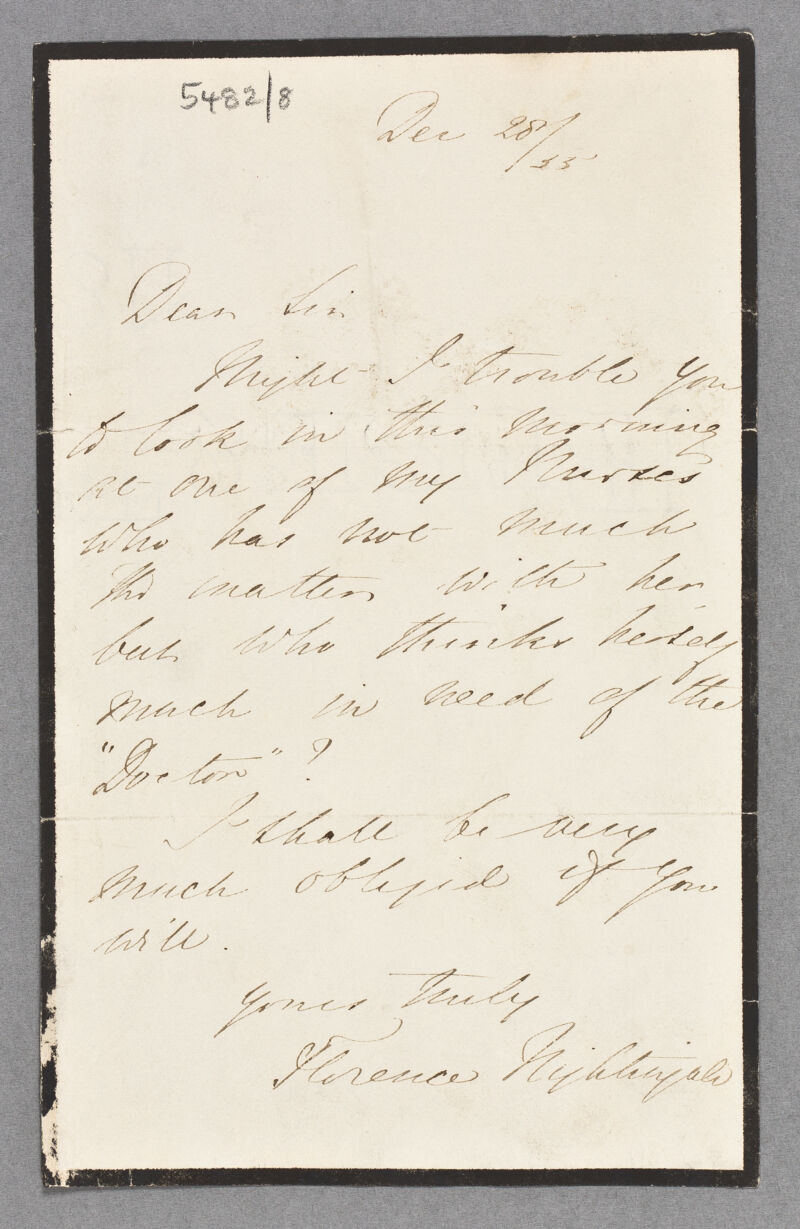 5482/8
Dec 28/55
Dear Sir
Might I trouble you
to look in this morning
at one of my Nurses
who has not much
the matter with her
but who thinks herself
much in need of the
"Doctor"?
I shall be very
much obliged if you
will.
Yours truly
Florence Nightingale